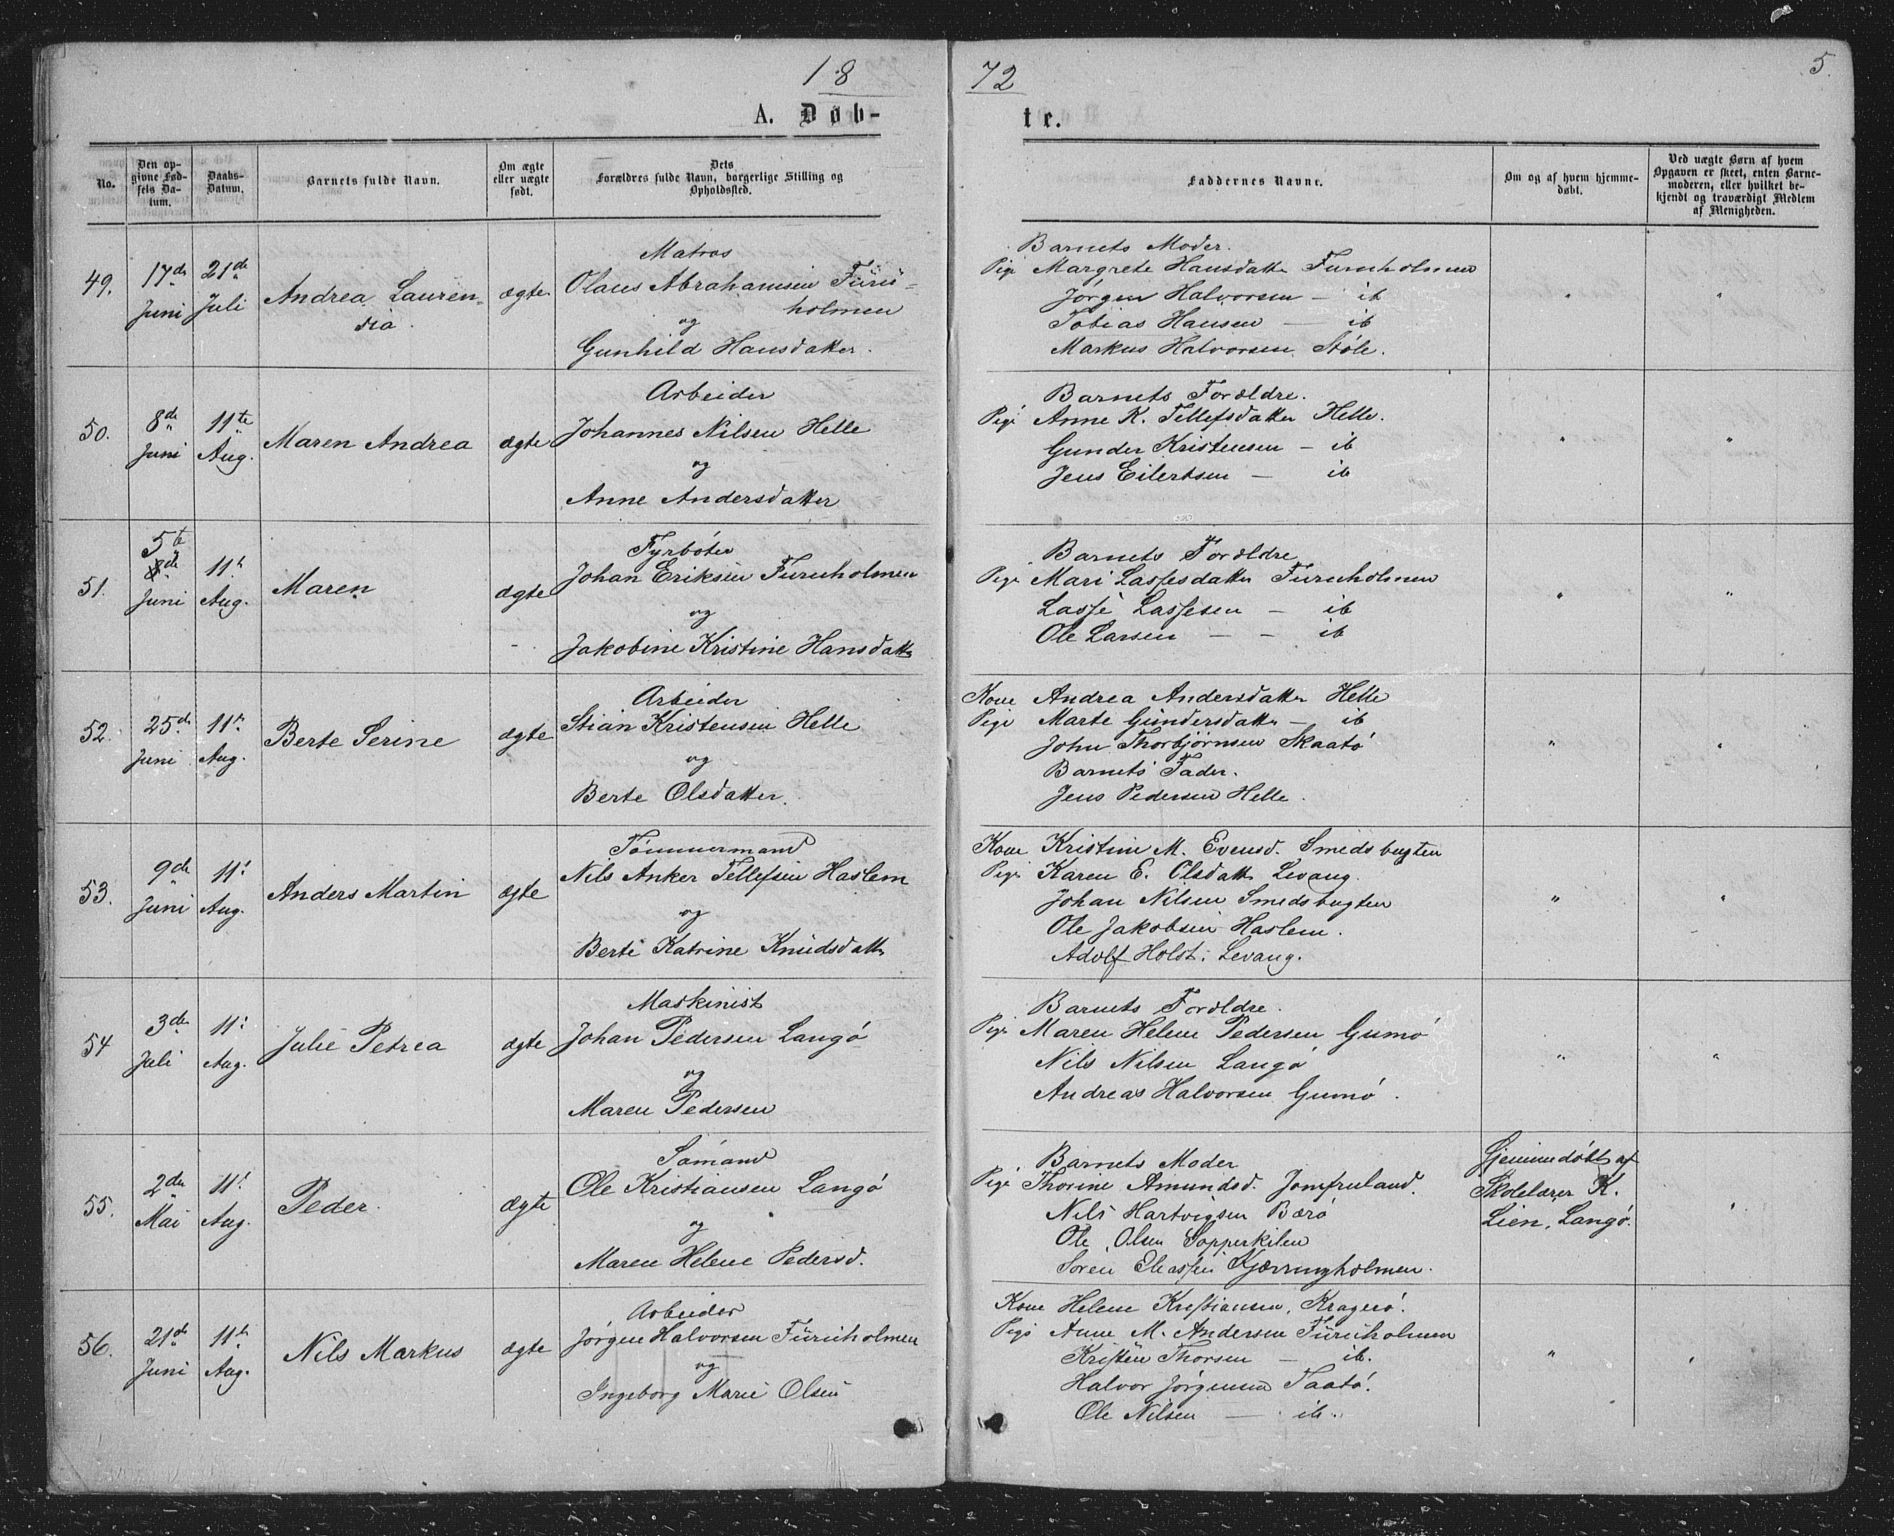 18 72 5.
A. Døb- te.
No.
Den op-
givne Fød-
sels Da-
tum.
Daabs-
Datum.
Barnets fulde Navn.
Om ægte
eller uægte
født.
Dets
Forældres fulde Navn, borgerlige Stilling og
Opholdssted.
Faddernes Navne.
Om og af hvem hjemme-
døbt.
Ved uægte Børn af hvem
Opgaven er skeet, enten Barne-
moderen, eller hvilket be-
kjendt og troværdigt Medlem
af Menigheden.
49.
17de
Juni
21de
Juli
Andrea Lauren-
dia.
ægte
Matros
Olaus Abrahamsen Furu-
holmen
og
Gunhild Hansdatter.
Barnets Moder.
Pige Margrete Hansdatter Furuholmen
Jørgen Halvorsen — ib
Tobias Hansen — ib
Markus Halvorsen Støle.
" "
50.
8de
Juni
11te
Aug.
Maren Andrea
ægte
Arbeider
Johannes Nilsen Helle
og
Anne Andersdatter
Barnets Forældre.
Pige Anne K. Tellefsdatter Helle.
Gunder Kristensen — ib
Jens Eilertsen — ib
" "
51.
5te
8de
Juni
11te
Aug.
Maren
ægte
Fyrbøter
Johan Eriksen Furuholmen
og
Jakobine Kristine Hansdatter
Barnets Forældre
Pige Mari Lassesdatter Furuholmen
Lasse Lassesen — ib
Ole Larsen — — ib
" "
52.
25de
Juni
11te
Aug.
Berte Serine
ægte
Arbeider
Stian Kristensen Helle
og
Berte Olsdatter.
Kone Andrea Andersdatter Helle
Pige Marte Gundersdatter — ib
John Thorbjørnsen Skaatø
Barnets Fader.
Jens Pedersen Helle.
" "
53.
9de
Juni
11te
Aug.
Anders Martin
ægte
Tømmermand
Nils Anker Tellefsen Haslem
og
Berte Katrine Knudsdatter
Kone Kristine M. Evensd. Smedsbugten
Pige Karen E. Olsdatt Levang.
Johan Nilsen Smedsbugten
Ole Jakobsen Haslem.
Adolf Holst. Levang.
" "
54
3de
Juli
11te
Aug.
Julie Petrea
ægte
Maskinist
Johan Pedersen Langø
og
Maren Pedersen
Barnets Forældre.
Pige Maren Helene Pedersen Gumø
Nils Nilsen Langø
Andreas Halvorsen Gumø.
" "
55.
2den
Mai
11te
Aug.
Peder.
ægte
Sømand
Ole Kristiansen Langø
og
Maren Helene Pedersd.
Barnets Moder
Pige Thorine Amundsd. Jomfruland.
Nils Hartvigsen Bærø
Ole Olsen Sopperkilen
Søren Eliassen Kjærringholmen.
Hjemmedøbt af
Skolelærer K.
Lien, Langø.
"
56.
21de
Juni
11te
Aug.
Nils Markus
ægte
Arbeider
Jørgen Halvorsen Furuholmen
og
Ingeborg Marie Olsen
Kone Helene Kristiansen, Kragerø.
Pige Anne M. Andersen Furuholmen
Kristen Thorsen — ib.
Halvor Jørgensen Taatø.
Ole Nilsen — ib.
" "